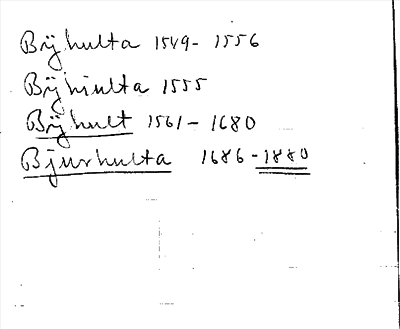 Bÿhulta 1549-1556
Bÿhiulta 1555
Bÿhult 1561-1680
Bjurhulta 1686-1880